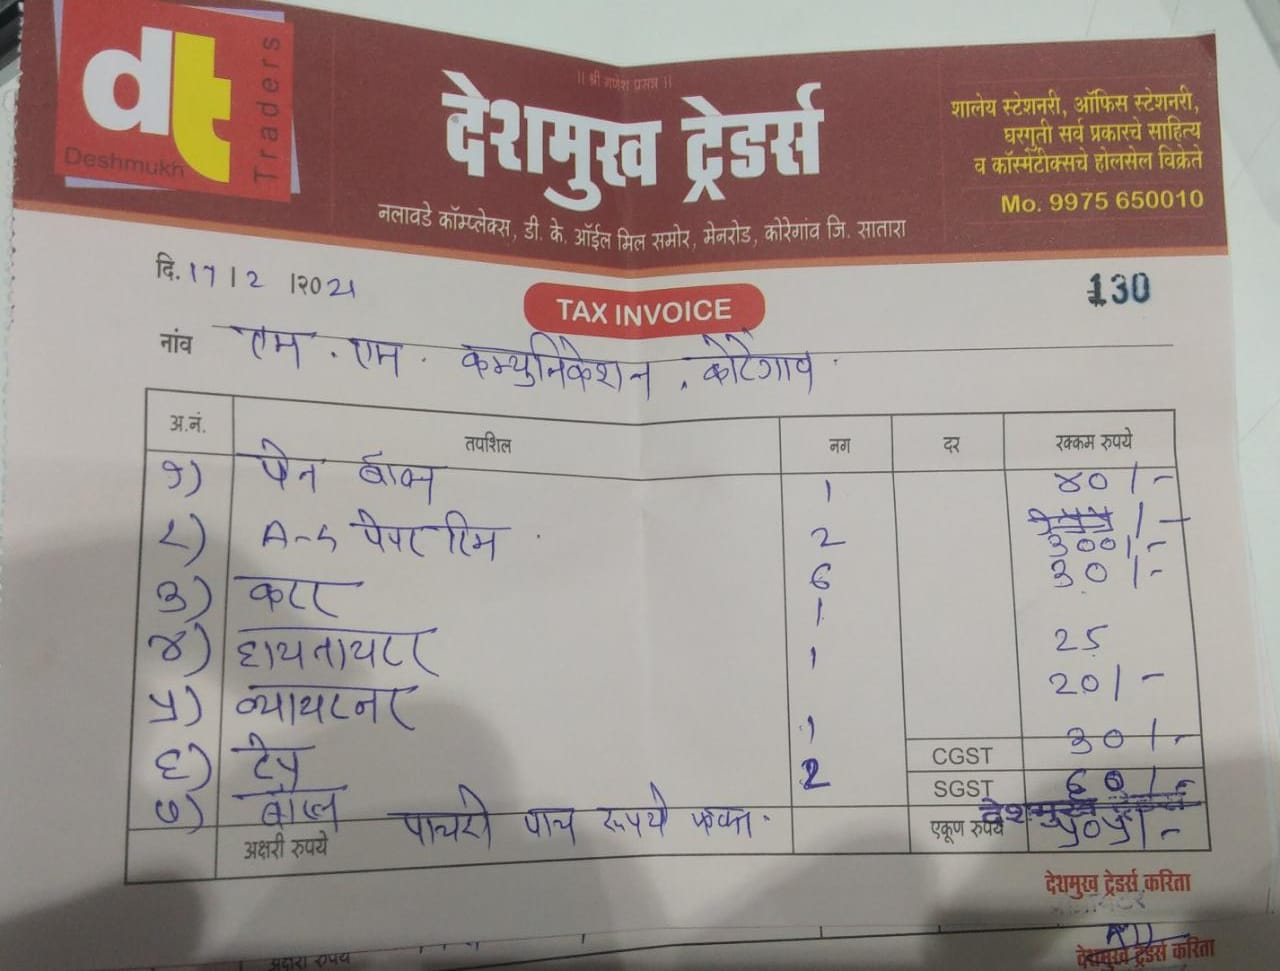 dt
Deshmukh
Traders
|| श्री गणेश प्रसन्न ||
देशमुख ट्रेडर्स
नलावडे कॉम्प्लेक्स, डी. के. ऑईल मिल समोर, मेनरोड, कोरेगांव जि. सातारा
शालेय स्टेशनरी, ऑफिस स्टेशनरी,
घरगुती सर्व प्रकारचे साहित्य
व कॉस्मेटीक्सचे होलसेल विक्रेते
Mo. 9975 650010
दि. 17 / 2 /२०21
TAX INVOICE
130
नांव एम. एम. कम्युनिकेशन, कोरेगाव.
अ.नं. तपशिल नग दर रक्कम रुपये
१) पेन बॉक्स 1 ४० /-
२) पेपर रिम 2 300/-
३) कटर 6 30/-
४) हायलायटर 1 25
५) व्हायटनर 1 20/-
६) टेप 1 30/-
७) 2 60/-
CGST
SGST
अक्षरी रुपये पाचशे पाच रूपये फक्त. एकूण रुपये ५०५/-
देशमुख ट्रेडर्स
देशमुख ट्रेडर्स करिता
अक्षरी रुपये
देशमुख ट्रेडर्स करिता